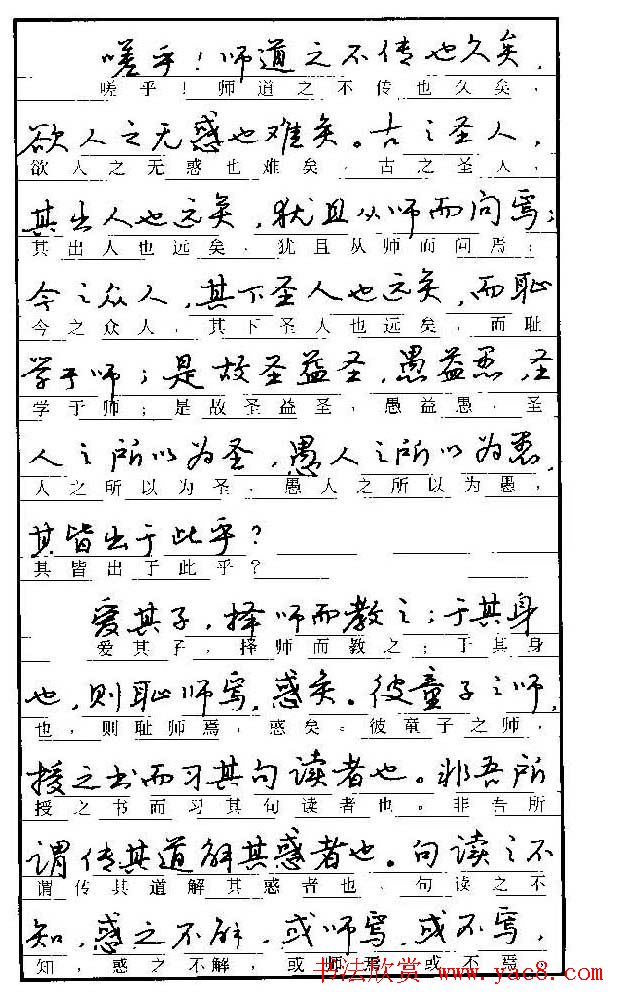 嗟乎！师道之不传也久矣，
嗟乎！师道之不传也久矣，
欲人之无惑也难矣。古之圣人，
欲人之无惑也难矣，古之圣人，
其出人也远矣，犹且从师而问焉；
其出人也远矣，犹且从师而问焉；
今之众人，其下圣人也远矣，而耻
今之众人，其下圣人也远矣，而耻
学于师；是故圣益圣，愚益愚，圣
学于师；是故圣益圣，愚益愚，圣
人之所以为圣，愚人之所以为愚，
人之所以为圣，愚人之所以为愚，
其皆出于此乎？
其皆出于此乎？
爱其子，择师而教之；于其身
爱其子，择师而教之；于其身
也，则耻师焉，惑矣。彼童子之师，
也，则耻师焉，惑矣。彼童子之师，
授之书而习其句读者也。非吾所
授之书而习其句读者也。非吾所
谓传其道解其惑者也。句读之不
谓传其道解其惑者也。句读之不
知，惑之不解，或师焉，或不焉，
知，惑之不解，或师焉，或不焉
书法欣赏 www.yac8.com